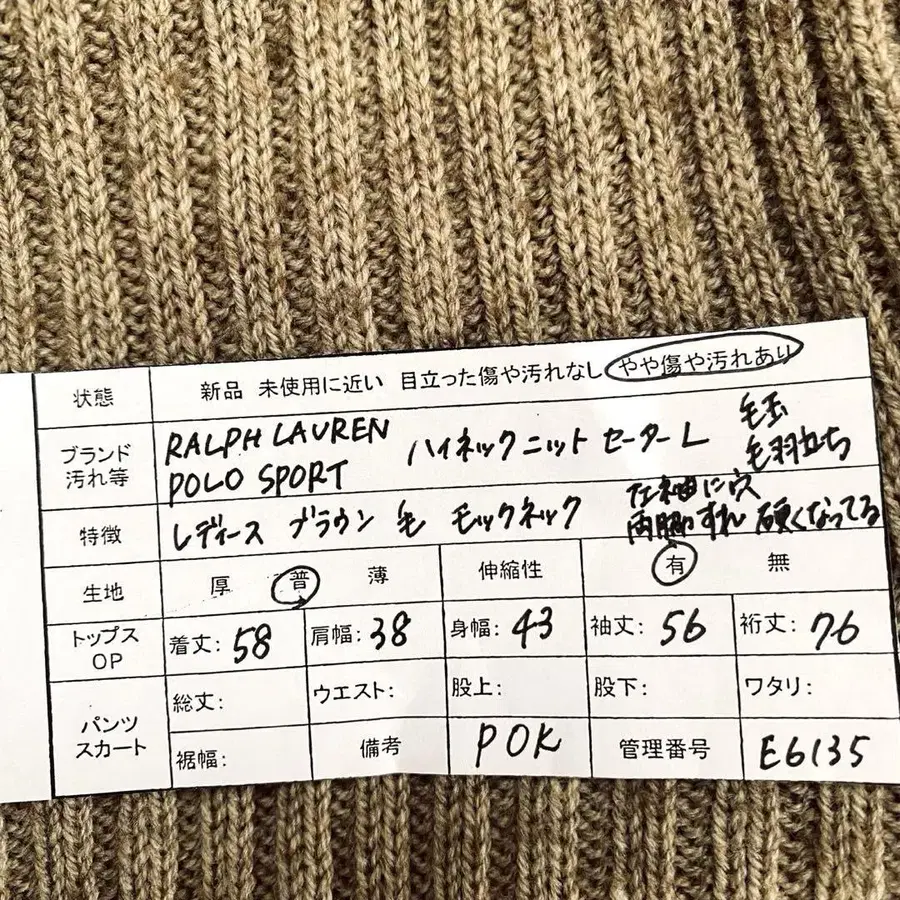 状態 新品 未使用に近い 目立った傷や汚れなし やや傷や汚れあり
ブランド 汚れ等 RALPH LAUREN POLO SPORT ハイネックニット セーター L 毛玉 毛羽立ち
特徴 レディース ブラウン 毛 モックネック 左袖に穴 両脇すれ 硬くなってる
生地 厚 普 薄 伸縮性 有 無
トップス OP 着丈: 58 肩幅: 38 身幅: 43 袖丈: 56 裄丈: 76
パンツ スカート 総丈: ウエスト: 股上: 股下: ワタリ:
裾幅: 備考 POK 管理番号 E6135